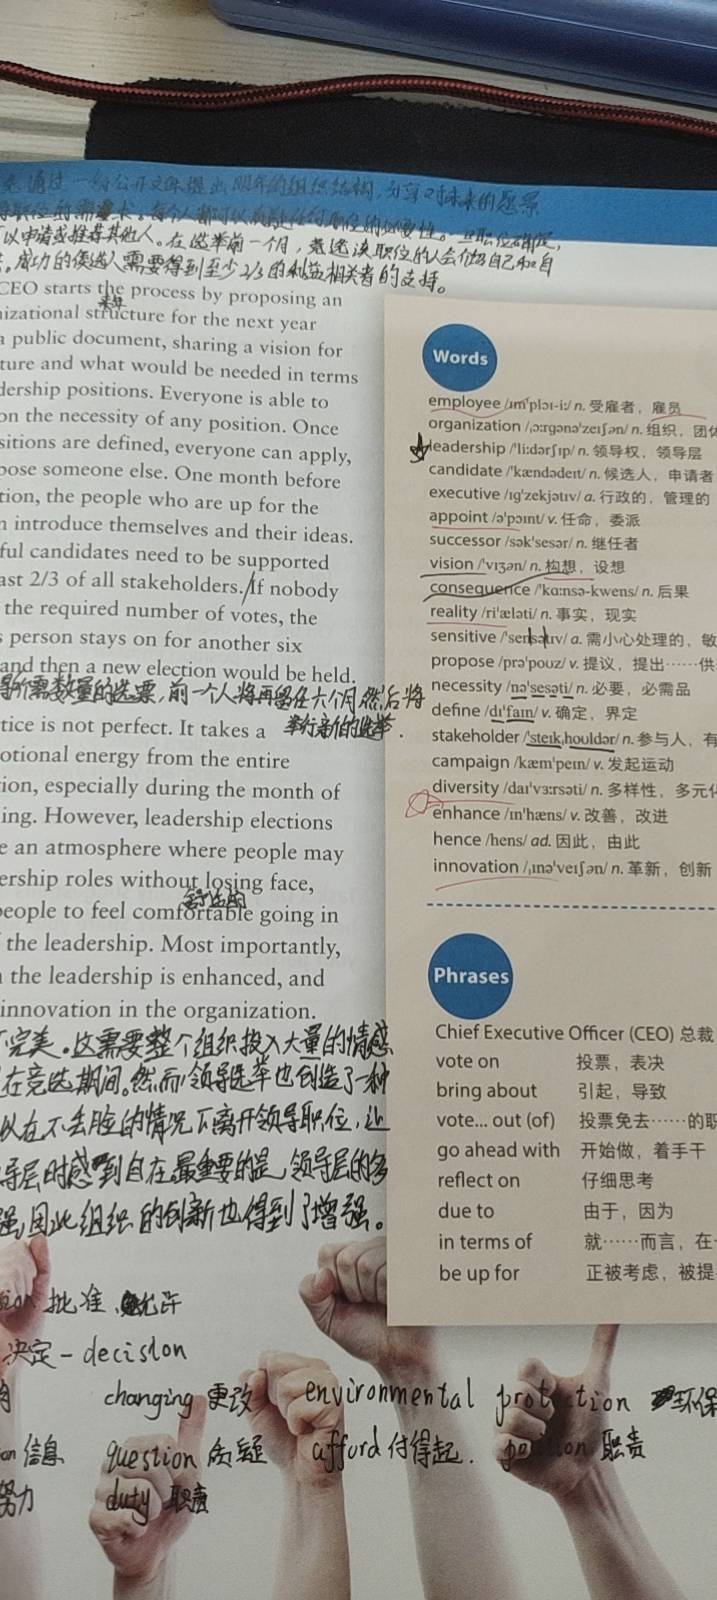 通过一份公开文件提出明年的组织结构,分享对未来的愿景
以申请或推荐其他人。在选举前一个月,竞选该职位的人会介绍自己和自
成功的候选人需要得到至少2/3的利益相关者的支持。
CEO starts the process by proposing an
来年
nizational structure for the next year
a public document, sharing a vision for
ture and what would be needed in terms
dership positions. Everyone is able to
on the necessity of any position. Once
sitions are defined, everyone can apply,
pose someone else. One month before
tion, the people who are up for the
n introduce themselves and their ideas.
ful candidates need to be supported
ast 2/3 of all stakeholders. If nobody
the required number of votes, the
s person stays on for another six
and then a new election would be held.
得所需数量的选票,前一个人将再留任六个月然后将
举行新的选举.
tice is not perfect. It takes a
otional energy from the entire
tion, especially during the month of
ing. However, leadership elections
e an atmosphere where people may
ership roles without losing face,
people to feel comfortable going in
f the leadership. Most importantly,
n the leadership is enhanced, and
innovation in the organization.
完美。这需要整个组织投入大量的情感
在竞选期间。然而领导选举也创造了一种
以在不丢脸的情况下离开领导职位,让
导层时感到自在最重要的是,领导层的多
强,因此组织的创新也得到了增强。
批准、允许
决定-decision
changing 更改 environmental protection 环保
信息 question 质疑 afford 付得起. position 职责
努力 duty 职责
Words
employee /ɪmˈplɔɪ-iː/ n. 受雇者,雇员
organization /ˌɔːrɡənəˈzeɪʃən/ n. 组织,团体
leadership /ˈliːdərʃɪp/ n. 领导权,领导层
candidate /ˈkændədeɪt/ n. 候选人,申请者
executive /ɪɡˈzekjətɪv/ a. 行政的,管理的
appoint /əˈpɔɪnt/ v. 任命,委派
successor /səkˈsesər/ n. 继任者
vision /ˈvɪʒən/ n. 构想,设想
consequence /ˈkɑːnsə-kwens/ n. 后果
reality /riˈæləti/ n. 事实,现实
sensitive /ˈsensətɪv/ a. 需小心处理的,敏
propose /prəˈpoʊz/ v. 提议,提出……供
necessity /nəˈsesəti/ n. 必要,必需品
define /dɪˈfaɪn/ v. 确定,界定
stakeholder /ˈsteɪkˌhoʊldər/ n. 参与人,有
campaign /kæmˈpeɪn/ v. 发起运动
diversity /daɪˈvɜːrsəti/ n. 多样性,多元化
enhance /ɪnˈhæns/ v. 改善,改进
hence /hens/ ad. 因此,由此
innovation /ˌɪnəˈveɪʃən/ n. 革新,创新
Phrases
Chief Executive Officer (CEO) 总裁
vote on 投票,表决
bring about 引起,导致
vote... out (of) 投票免去……的职
go ahead with 开始做,着手干
reflect on 仔细思考
due to 由于,因为
in terms of 就……而言,在
be up for 正被考虑,被提